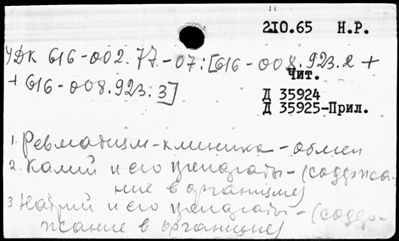 210.65 Н.Р.
УДК 616-002.77-07:[616-008.923.2 +
+ 616-008.923.3]
Чит.
Д 35924
Д 35925-Прил.
1. Ревматизм-клиника-обмен
2. Калий и его препараты-(содержа-
ние в организме)
3 Натрий и его препараты-(содер-
жание в организме)